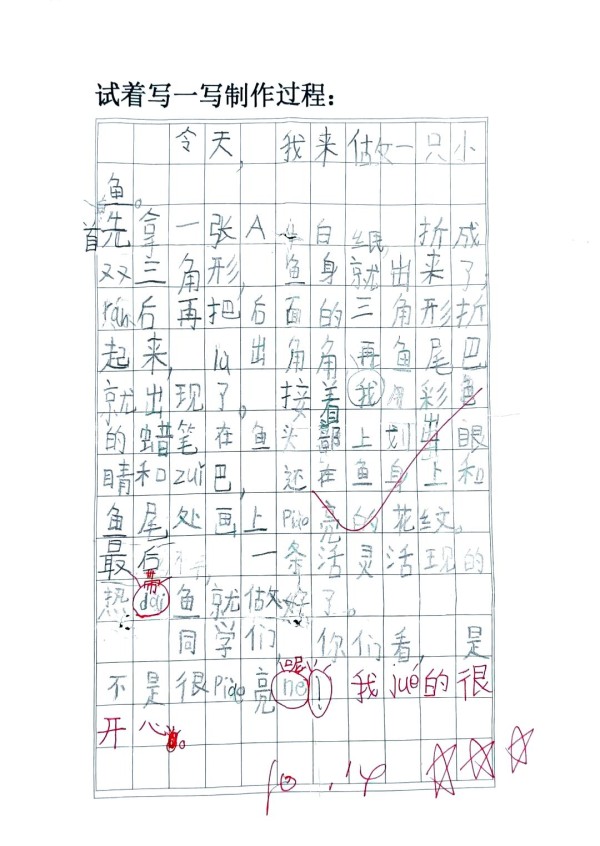 试着写一写制作过程：
今天，我来做一只小
鱼。
首先拿一张A4白纸，折成
双三角形，鱼身就出来了，
rán后再把后面的三角形折
起来，la出角角再鱼尾巴
就出现了。接着我用彩色
的蜡笔在鱼头部上划出眼
睛和zuǐ巴，还在鱼身上和
鱼尾处画上piào亮的花纹。
最后，一条活灵活现的
带
热dài鱼就做好了。
同学们，你们看，是
呢
不是很piào亮ne！我jué的很
开心。
10.14 ☆☆☆